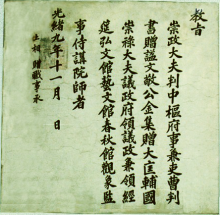 教旨
崇政大夫判中樞府事兼吏曹判
書贈諡文敬公金集贈大匡輔國
崇祿大夫議政府領議政兼領經
筵弘文館藝文館春秋館觀象監
事侍講院師者
光緖九年十一月 日